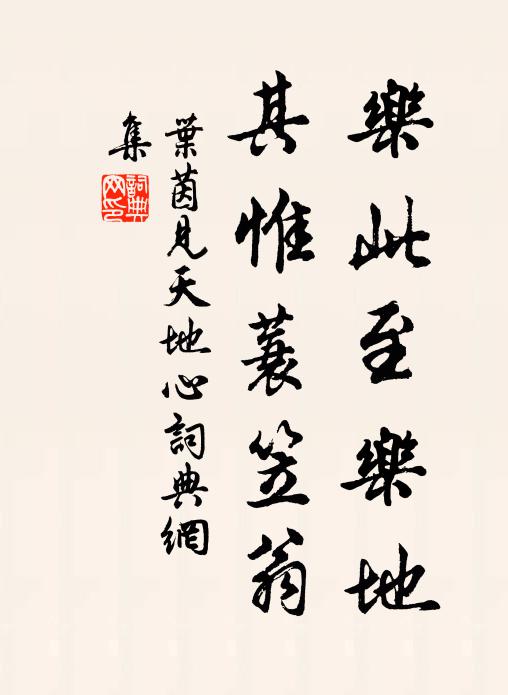 樂此至樂地
其惟蓑笠翁
葉茵見天地心詞典網
集
詞典網印